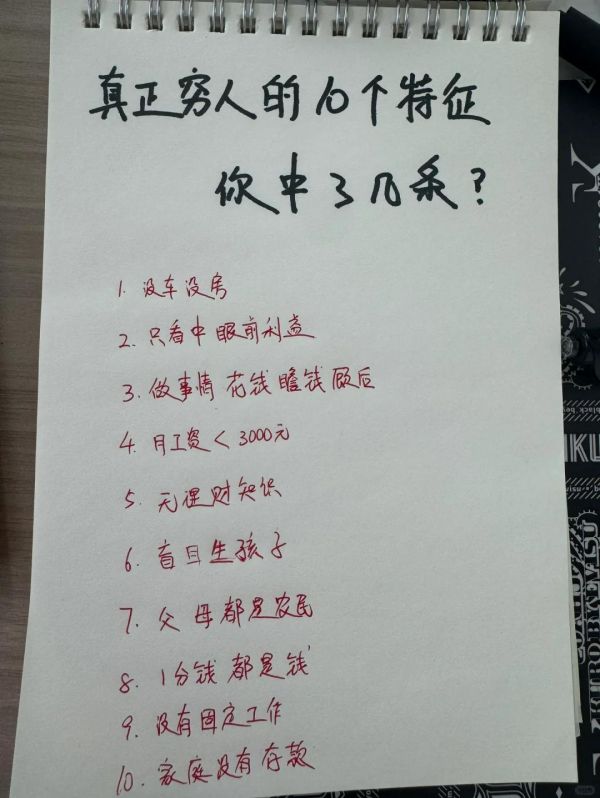 真正穷人的10个特征
你中了几条?
1. 没车没房
2. 只看中眼前利益
3. 做事情 花钱瞻钱顾后
4. 月工资<3000元
5. 无理财知识
6. 盲目生孩子
7. 父母都是农民
8. 1分钱都是钱
9. 没有固定工作
10. 家庭没有存款
black
KURO BY EVISU